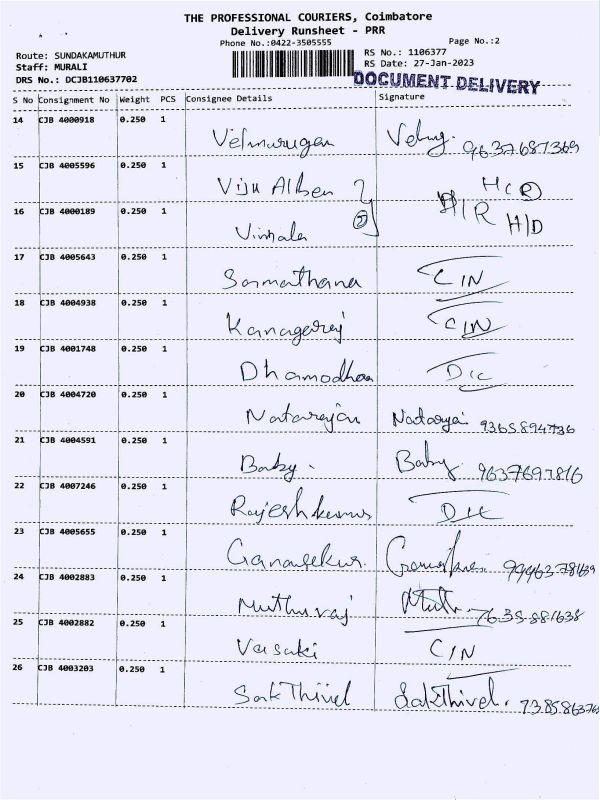 THE PROFESSIONAL COURIERS, Coimbatore
Delivery Runsheet - PRR
Phone No.:0422-3505555 Page No.:2
Route: SUNDAKAMUTHUR RS No.: 1106377
Staff: MURALI RS Date: 27-Jan-2023
DRS No.: DCJB110637702 DOCUMENT DELIVERY
S No Consignment No Weight PCS Consignee Details Signature
14 CJB 4000918 0.250 1 Velmurugan Velmg. 9637687369
15 CJB 4005596 0.250 1 Viju Alben H/R
16 CJB 4000189 0.250 1 Vimala ② H/R H/D
17 CJB 4005643 0.250 1 Somathana C/N
18 CJB 4004938 0.250 1 Kanagaraj C/N
19 CJB 4001748 0.250 1 Dhamodhan D/C
20 CJB 4004720 0.250 1 Natarajan 9365894736
21 CJB 4004591 0.250 1 Baby. Baby 9637697816
22 CJB 4007246 0.250 1 Rajeshkumar
23 CJB 4005655 0.250 1 Ganasekar
24 CJB 4002883 0.250 1 Muthuraj
25 CJB 4002882 0.250 1 Vasaki C/N
26 CJB 4003203 0.250 1 SakThivel SakThivel.